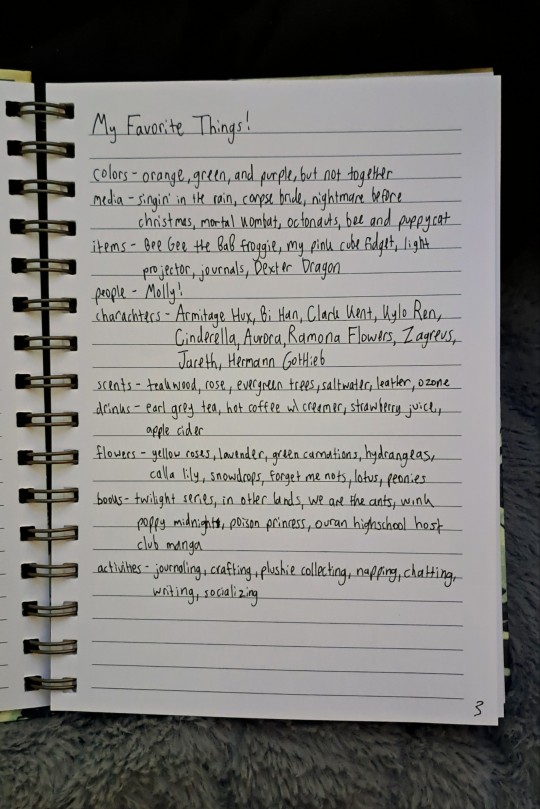 My Favorite Things!
colors - orange, green, and purple, but not together
media - singin' in the rain, corpse bride, nightmare before
christmas, mortal kombat, octonauts, bee and puppycat
items - Bee Gee the BaB froggie, my pink cube fidget, light
projector, journals, Dexter Dragon
people - Molly!
charachters - Armitage Hux, Bi Han, Clark Kent, Kylo Ren,
Cinderella, Aurora, Ramona Flowers, Zagreus,
Jareth, Hermann Gottlieb
scents - teakwood, rose, evergreen trees, saltwater, leather, ozone
drinks - earl grey tea, hot coffee w/ creamer, strawberry juice,
apple cider
flowers - yellow roses, lavender, green carnations, hydrangeas,
calla lily, snowdrops, forget me nots, lotus, peonies
books - twilight series, in other lands, we are the ants, wink
poppy midnight, poison princess, ouran highschool host
club manga
activities - journaling, crafting, plushie collecting, napping, chatting,
writing, socializing
3